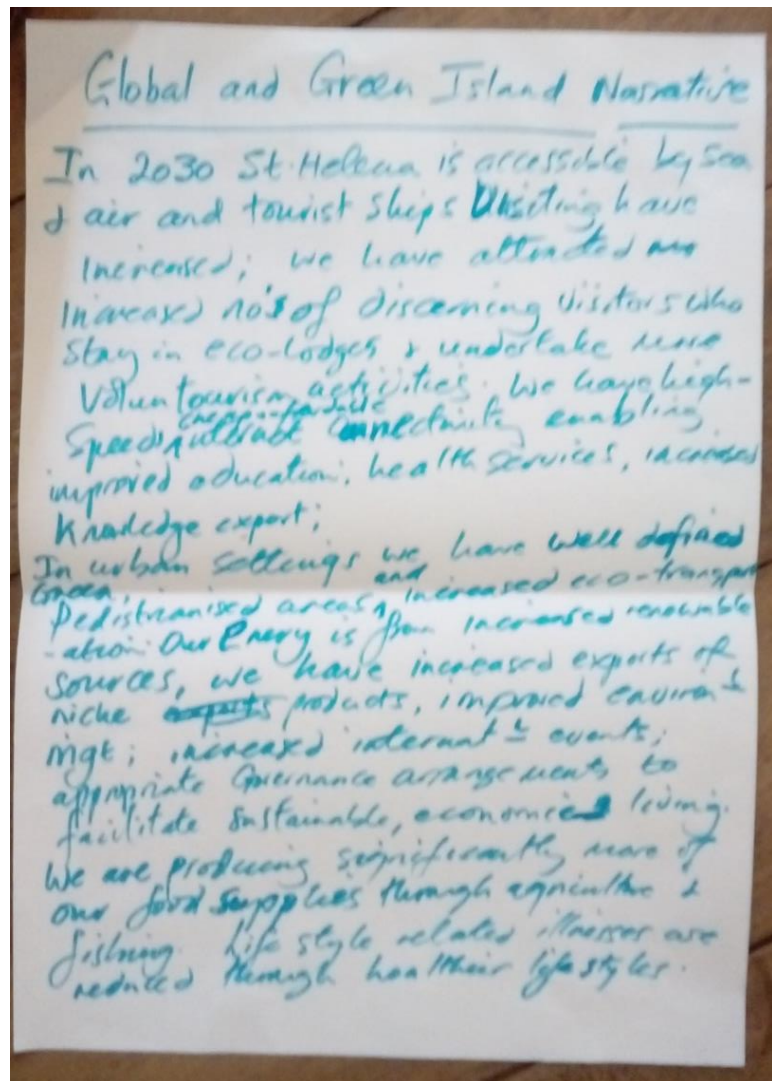 Global and Green Island Narrative
In 2030 St. Helena is accessible by sea
& air and tourist ships visiting have
increased; we have attracted
increased no's of discerning visitors who
stay in eco-lodges & undertake more
voluntourism activities. We have high-
speed connectivity enabling
improved education, health services, increased
knowledge export;
In urban settings we have well defined
Green,
Pedistrianised areas, and increased eco-transport
-ation. Our Enery is from increased renewable
sources, we have increased exports of
niche products, improved environ'l
mgt; increased internat'l events;
appropriate Governance arrangements to
facilitate sustainable, economic living.
We are producing significantly more of
our food supplies through agriculture &
fishing. Life style related illnesses are
reduced through healthier lifestyles.